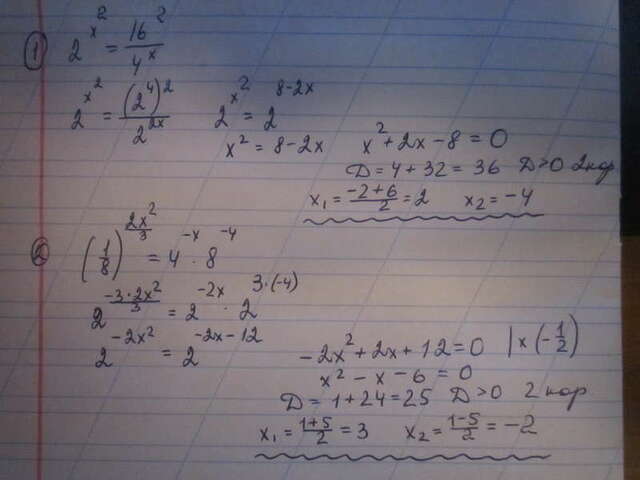 ① 2^{x^2} = 16^2 / 4^x
2^{x^2} = (2^4)^2 / 2^{2x}   2^{x^2} = 2^{8-2x}
x^2 = 8-2x   x^2+2x-8=0
D=4+32=36   D>0 2 кор
x_1 = (-2+6)/2 = 2   x_2 = -4
② (1/8)^{2x^2/3} = 4^{-x} · 8^{-4}
2^{-3·2x^2/3} = 2^{-2x} · 2^{3·(-4)}
2^{-2x^2} = 2^{-2x-12}
-2x^2+2x+12=0 |x(-1/2)
x^2-x-6=0
D=1+24=25   D>0   2 кор
x_1 = (1+5)/2 = 3   x_2 = (1-5)/2 = -2